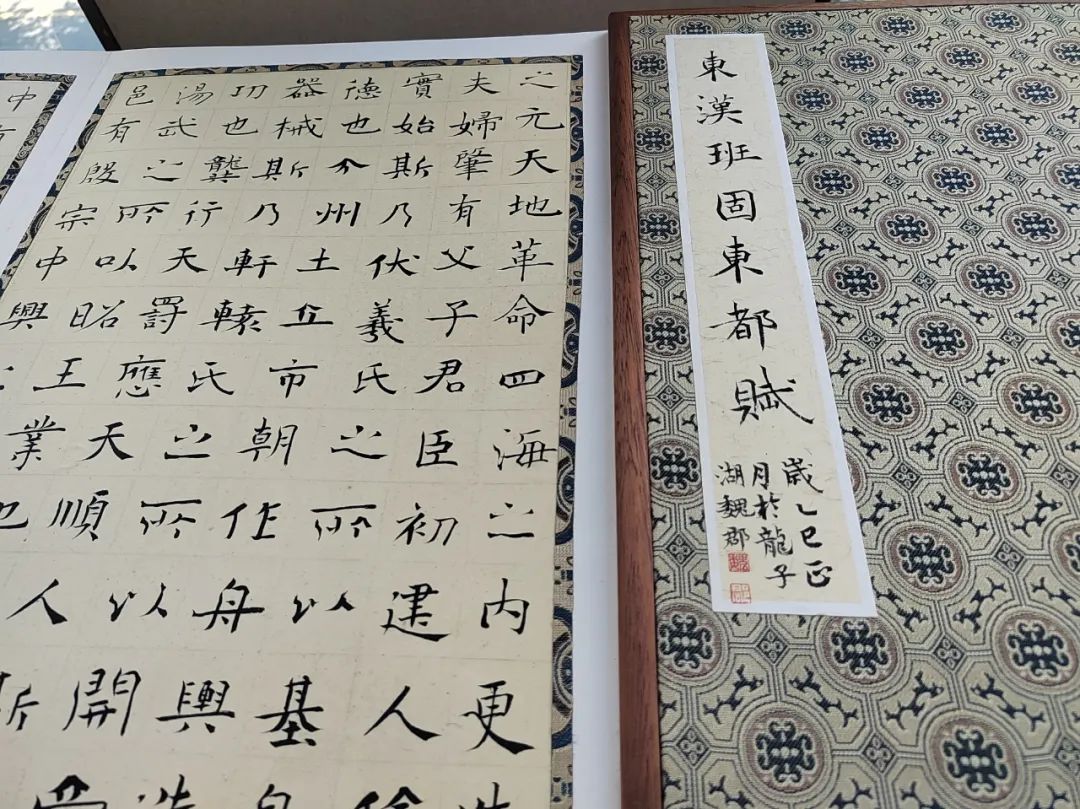 東漢班固東都賦
歲乙巳正
月於龍子
湖魏郡
之元天地革命四海之内更造
夫婦肇有父子君臣初建人倫
實始斯乃伏羲氏之所以基皇
德也分州土立市朝作舟輿造
器械也斯乃軒轅氏之所以開
功也龔行天罰應天順人斯
湯武之所以昭王業也
邑有殷宗中興
中